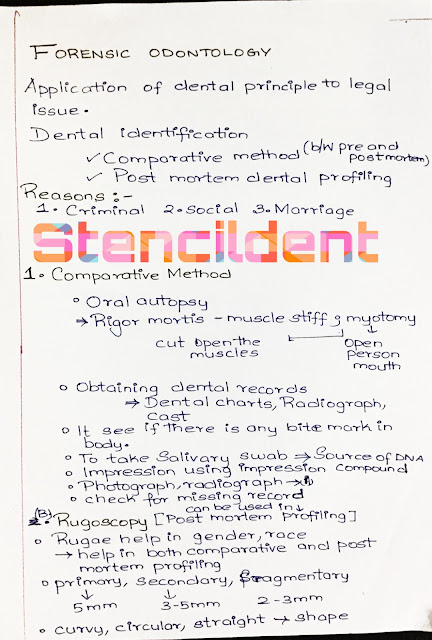 FORENSIC ODONTOLOGY
Application of dental principle to legal
issue.
Dental identification
✓ Comparative method (b/w pre and
postmortem)
✓ Post mortem dental profiling
Reasons :-
1. Criminal 2. Social 3. Marriage
Stencildent
1. Comparative Method
o Oral autopsy
→ Rigor mortis - muscle stiff & myotomy
cut open the
muscles
open
person
mouth
o Obtaining dental records
⇒ Dental charts, Radiograph,
cast
o It see if there is any bite mark in
body.
o To take Salivary swab ⇒ Source of DNA
o Impression using impression compound
o Photograph, radiograph →
o check for missing record
can be used in ↓
(B) 2. Rugoscopy [Post mortem profiling]
o Rugae help in gender, race
→ help in both comparative and post
mortem profiling
o primary, secondary, fragmentary
↓ ↓
5mm 3-5mm 2-3mm
o curvy, circular, straight → shape